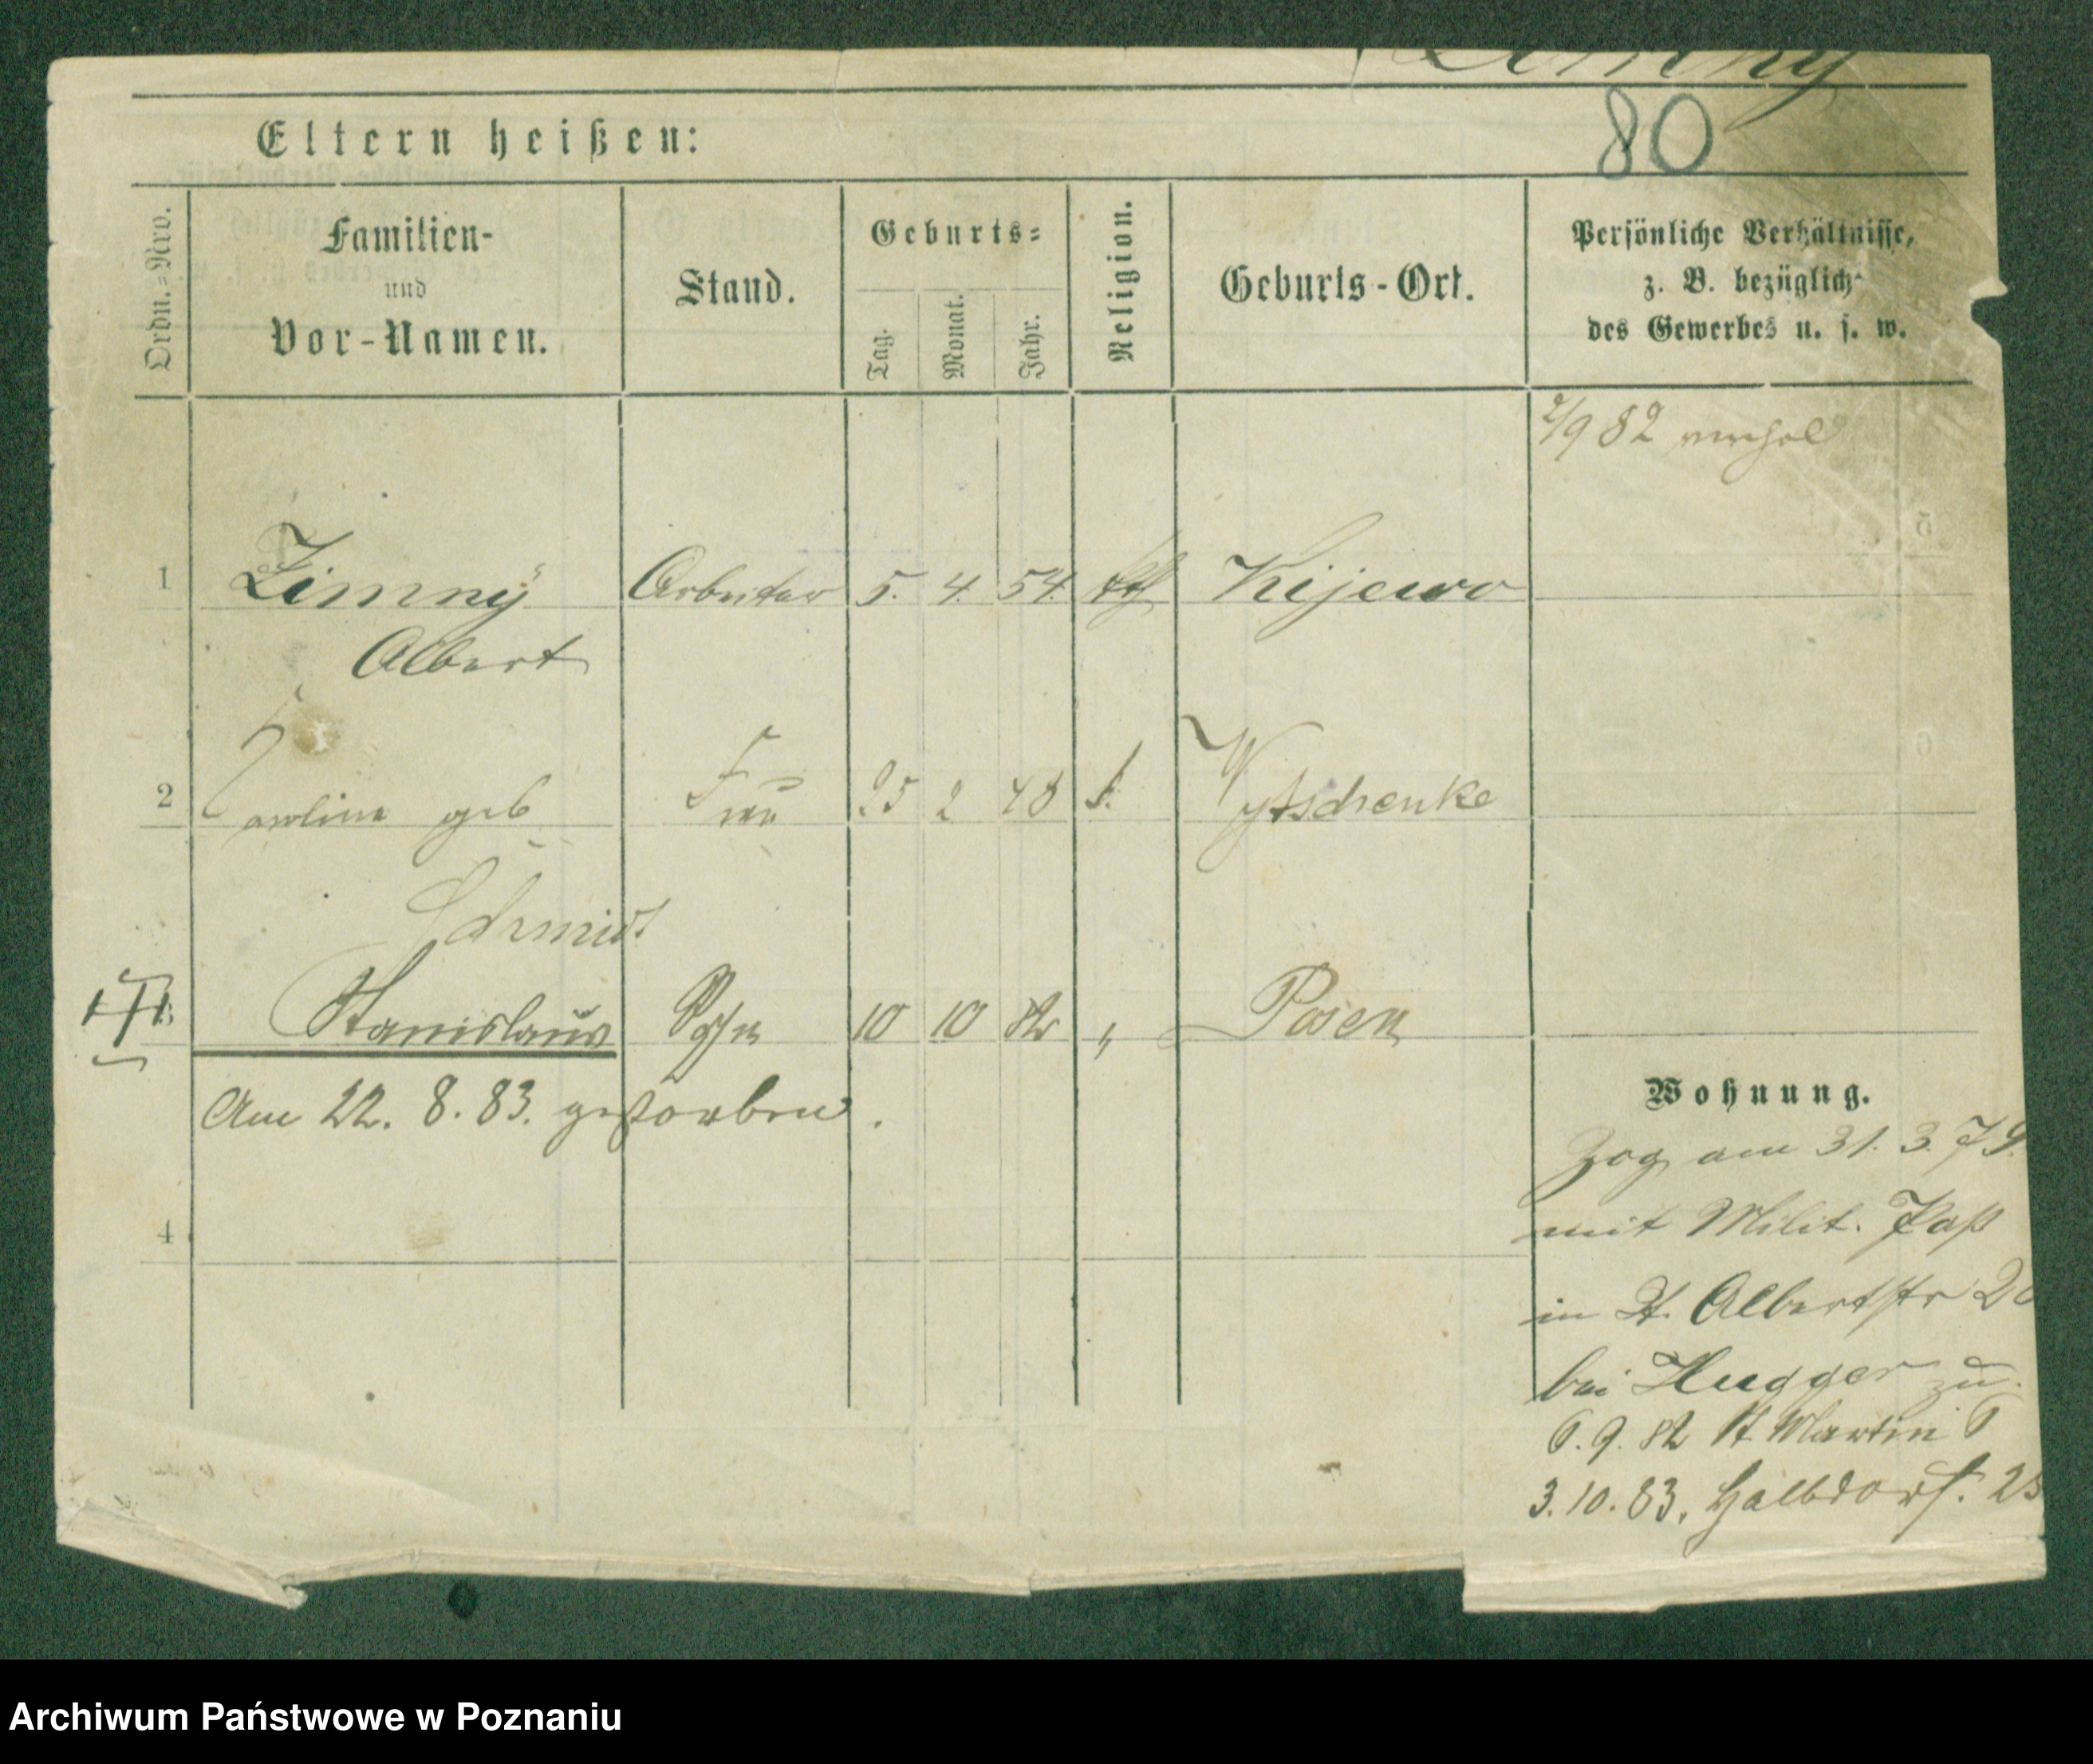 Zimny
80
Eltern heißen:
Ordn.=Nro.
Familien-
und
Vor-Namen.
Stand.
Geburts=
Tag.
Monat.
Jahr.
Religion.
Geburts-Ort.
Persönliche Verhältnisse,
z. B. bezüglich
des Gewerbes u. s. w.
2/9 82
1 Zimny Arbeiter 5. 4. 54. kth Kijewo
Albert
2 Karoline geb Frau 25 2 48 k. Wytschenke
Schmidt
3 Stanislaus Posen 10 10 82 " Posen
Am 22. 8. 83. gestorben.
4
Wohnung.
Zog am 31. 3. 79.
mit Milit. Paß
in St. Albertstr 20
bei Hugger zu.
6. 9. 82 St. Martin 6
3. 10. 83. Halbdorfs. 25
Archiwum Państwowe w Poznaniu